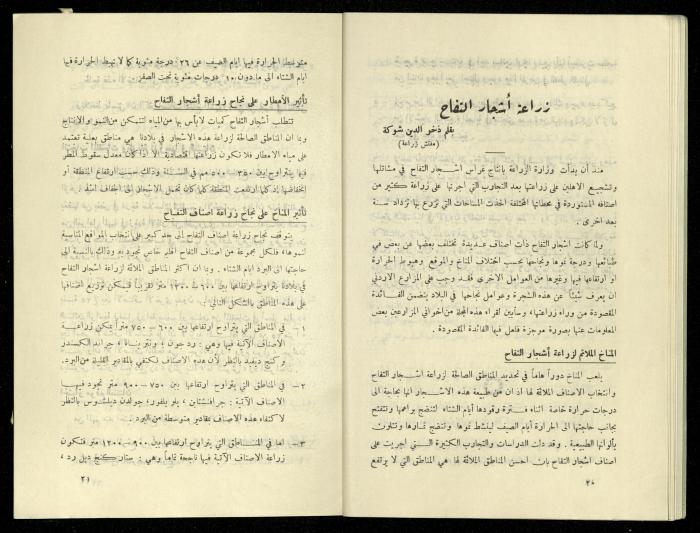 زراعة أشجار التفاح
بقلم فخر الدين شوكة
(مفتش زراعة)
منذ ان بدأت وزارة الزراعة بانتاج غراس اشجار التفاح في مشاتلها
وتشجيع الاهلين على زراعتها بعد التجارب التي اجرتها على زراعة كثير من
اصنافه المستوردة في محطاتها المختلفة اخذت المساحات التي تزرع بها تزداد سنة
بعد اخرى .
ولما كانت أشجار التفاح ذات اصناف عديدة تختلف بعضها عن بعض في
طبائعها ودرجة نموها ونجاحها بحسب اختلاف المناخ والموقع وهبوط الحرارة
او ارتفاعها فيها وغيرها من العوامل الاخرى فقد وجب على المزارع الاردني
ان يعرف شيئاً عن هذه الشجرة وعوامل نجاحها في البلاد ليضمن الفائدة
المقصودة من وراء زراعتها ، وسأبين لقراء هذه المجلة من اخواني المزارعين بعض
المعلومات عنها بصورة موجزة فلعل فيها الفائدة المقصودة .
المناخ الملائم لزراعة أشجار التفاح
يلعب المناخ دوراً هاماً في تحديد المناطق الصالحة لزراعة اشجار التفاح
وانتخاب الاصناف الملائمة لها اذ ان من طبيعة هذه الاشجار انها بحاجة الى
درجات حرارة خاصة اثناء فترة رقودها أيام الشتاء لتنضج براعمها وتتفتح
بجانب حاجتها الى الحرارة أيام الصيف لينشط نموها وتنضج ثمارها وتتلون
بألوانها الطبيعية . وقد دلت الدراسات والتجارب الكثيرة التي اجريت على
اصناف اشجار التفاح بان احسن المناطق الملائمة لها هي المناطق التي لا يرتفع
٢٠
متوسط الحرارة فيها ايام الصيف عن ٢٦ درجة مئوية كما لا تهبط الحرارة فيها
ايام الشتاء الى ما دون ١٠ درجات مئوية تحت الصفر .
تأثير الأمطار على نجاح زراعة أشجار التفاح
تتطلب أشجار التفاح كميات لا بأس بها من المياه لتتمكن من النمو والانتاج
وبما ان المناطق الصالحة لزراعة هذه الاشجار في بلادنا هي مناطق بعلية تعتمد
على مياه الامطار فلا تكون زراعتها اقتصادية الا اذا كان معدل سقوط المطر
فيها يتراوح بين ٣٥٠ – ٥٠٠ مم في السنة وذلك حسب ارتفاع المنطقة او
انخفاضها إذ كلما ارتفعت المنطقة كلما كان تحمل الاشجار الى الجفاف اشد .
تأثير المناخ على نجاح زراعة اصناف التفاح
يتوقف نجاح زراعة اصناف التفاح الى حد كبير على انتخاب المواقع المناسبة
لنموها ، فلكل مجموعة من اصناف التفاح اقليم خاص تجود به وذلك بالنسبة الى
حاجتها الى البرد ايام الشتاء . وبما ان اكثر المناطق الملائمة لزراعة اشجار التفاح
في بلادنا يتراوح ارتفاعها بين ٦٠٠ – ١٢٠٠ متر تقريباً فيمكن توزيع اصنافها
على هذه المناطق بالشكل التالي :
١ – في المناطق التي يتراوح ارتفاعها بين ٦٠٠ – ٧٥٠ متراً يمكن زراعة
الاصناف الآتية فيها وهي : رد جون ؛ ونتر بنانا ؛ جراند الكسندر
و كنج ديفيد بالنظر لأن هذه الاصناف تكتفي بالمقادير القليلة من البرد.
٢ – في المناطق التي يتراوح ارتفاعها بين ٧٥٠ – ٩٠٠ متر تجود فيها
الاصناف الآتية : جرافنشتاين ، يلو بلفور، جولدن ديلشوس بالنظر
لاكتفاء هذه الاصناف بمقادير متوسطة من البرد .
٣ – اما في المناطق التي يتراوح ارتفاعها بين ٩٠٠ – ١٢٠٠ متر فتكون
زراعة الاصناف الآتية فيها ناجحة تماماً وهي : ستار كنج ديل رد ،
٢١